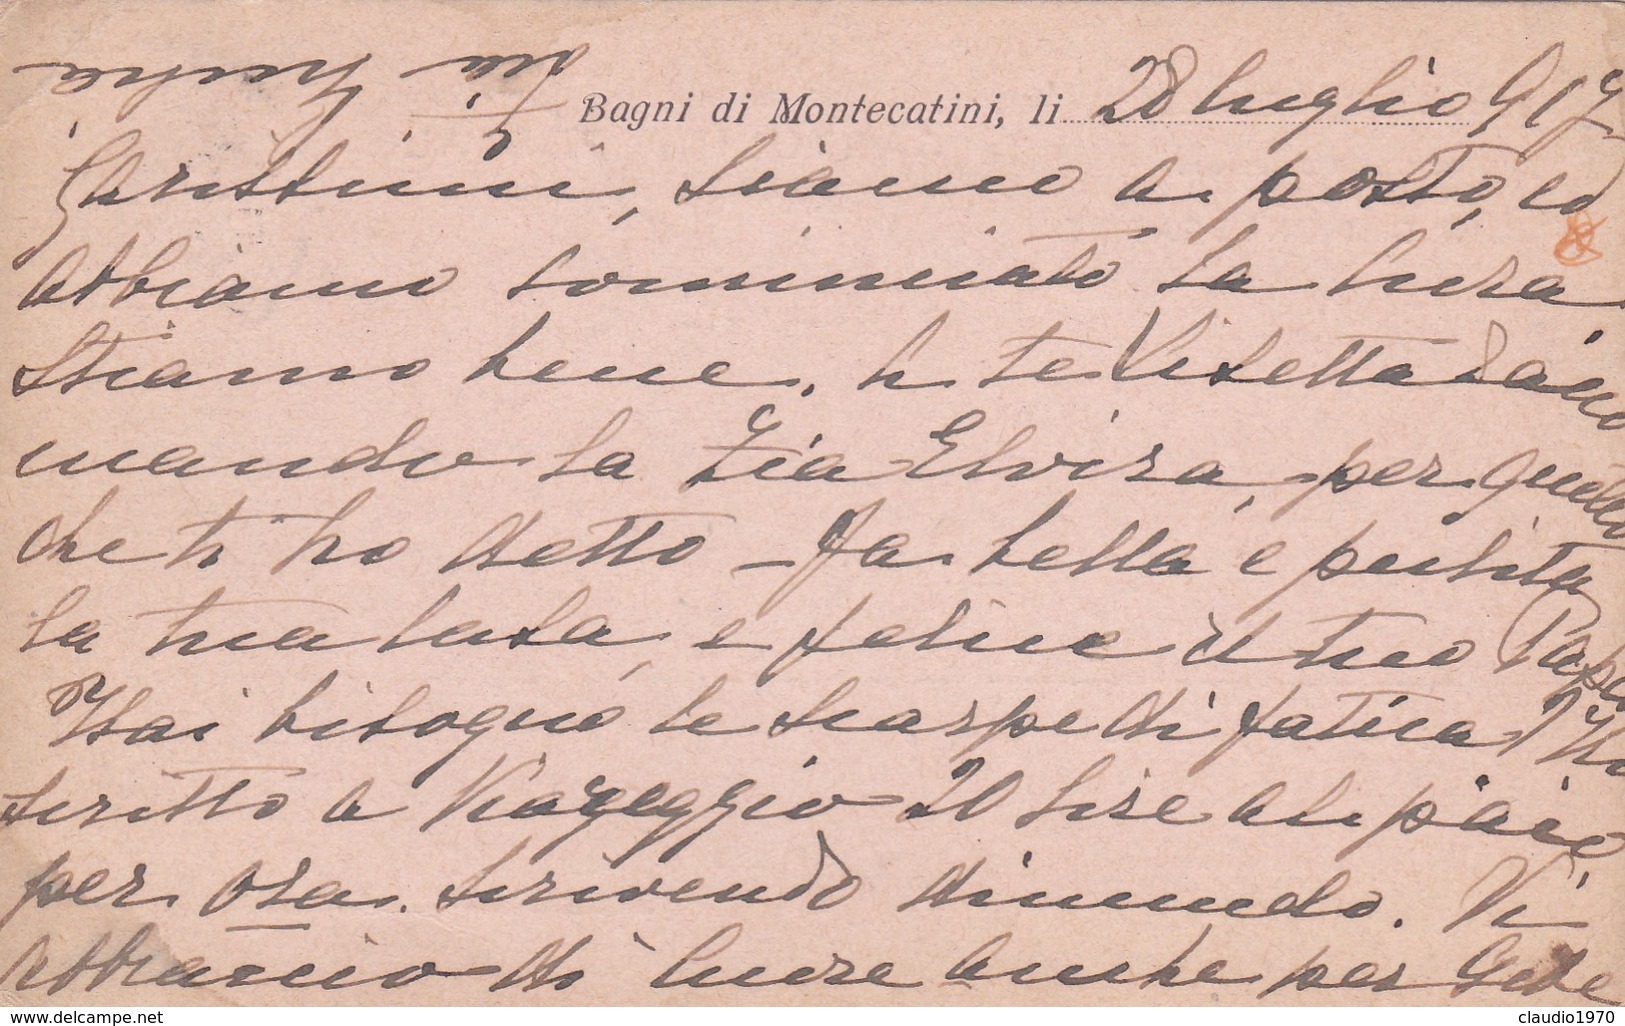 Bagni di Montecatini, li 28 luglio 917
Carissimi, siamo a posto, ed
abbiamo cominciato la cura
stiamo bene. A te Lisetta racco
mando la zia Elvira, per quello
che ti ho detto - fa bella e pulita
la tua casa, e felice il tuo Papà
Hai bisogno le scarpe di fatica? Ho
scritto a Viareggio 20 lire al paio,
per ora. Scrivendo dimmelo. Vi
abbracciamo di cuore anche per
www.delcampe.net
claudio1970